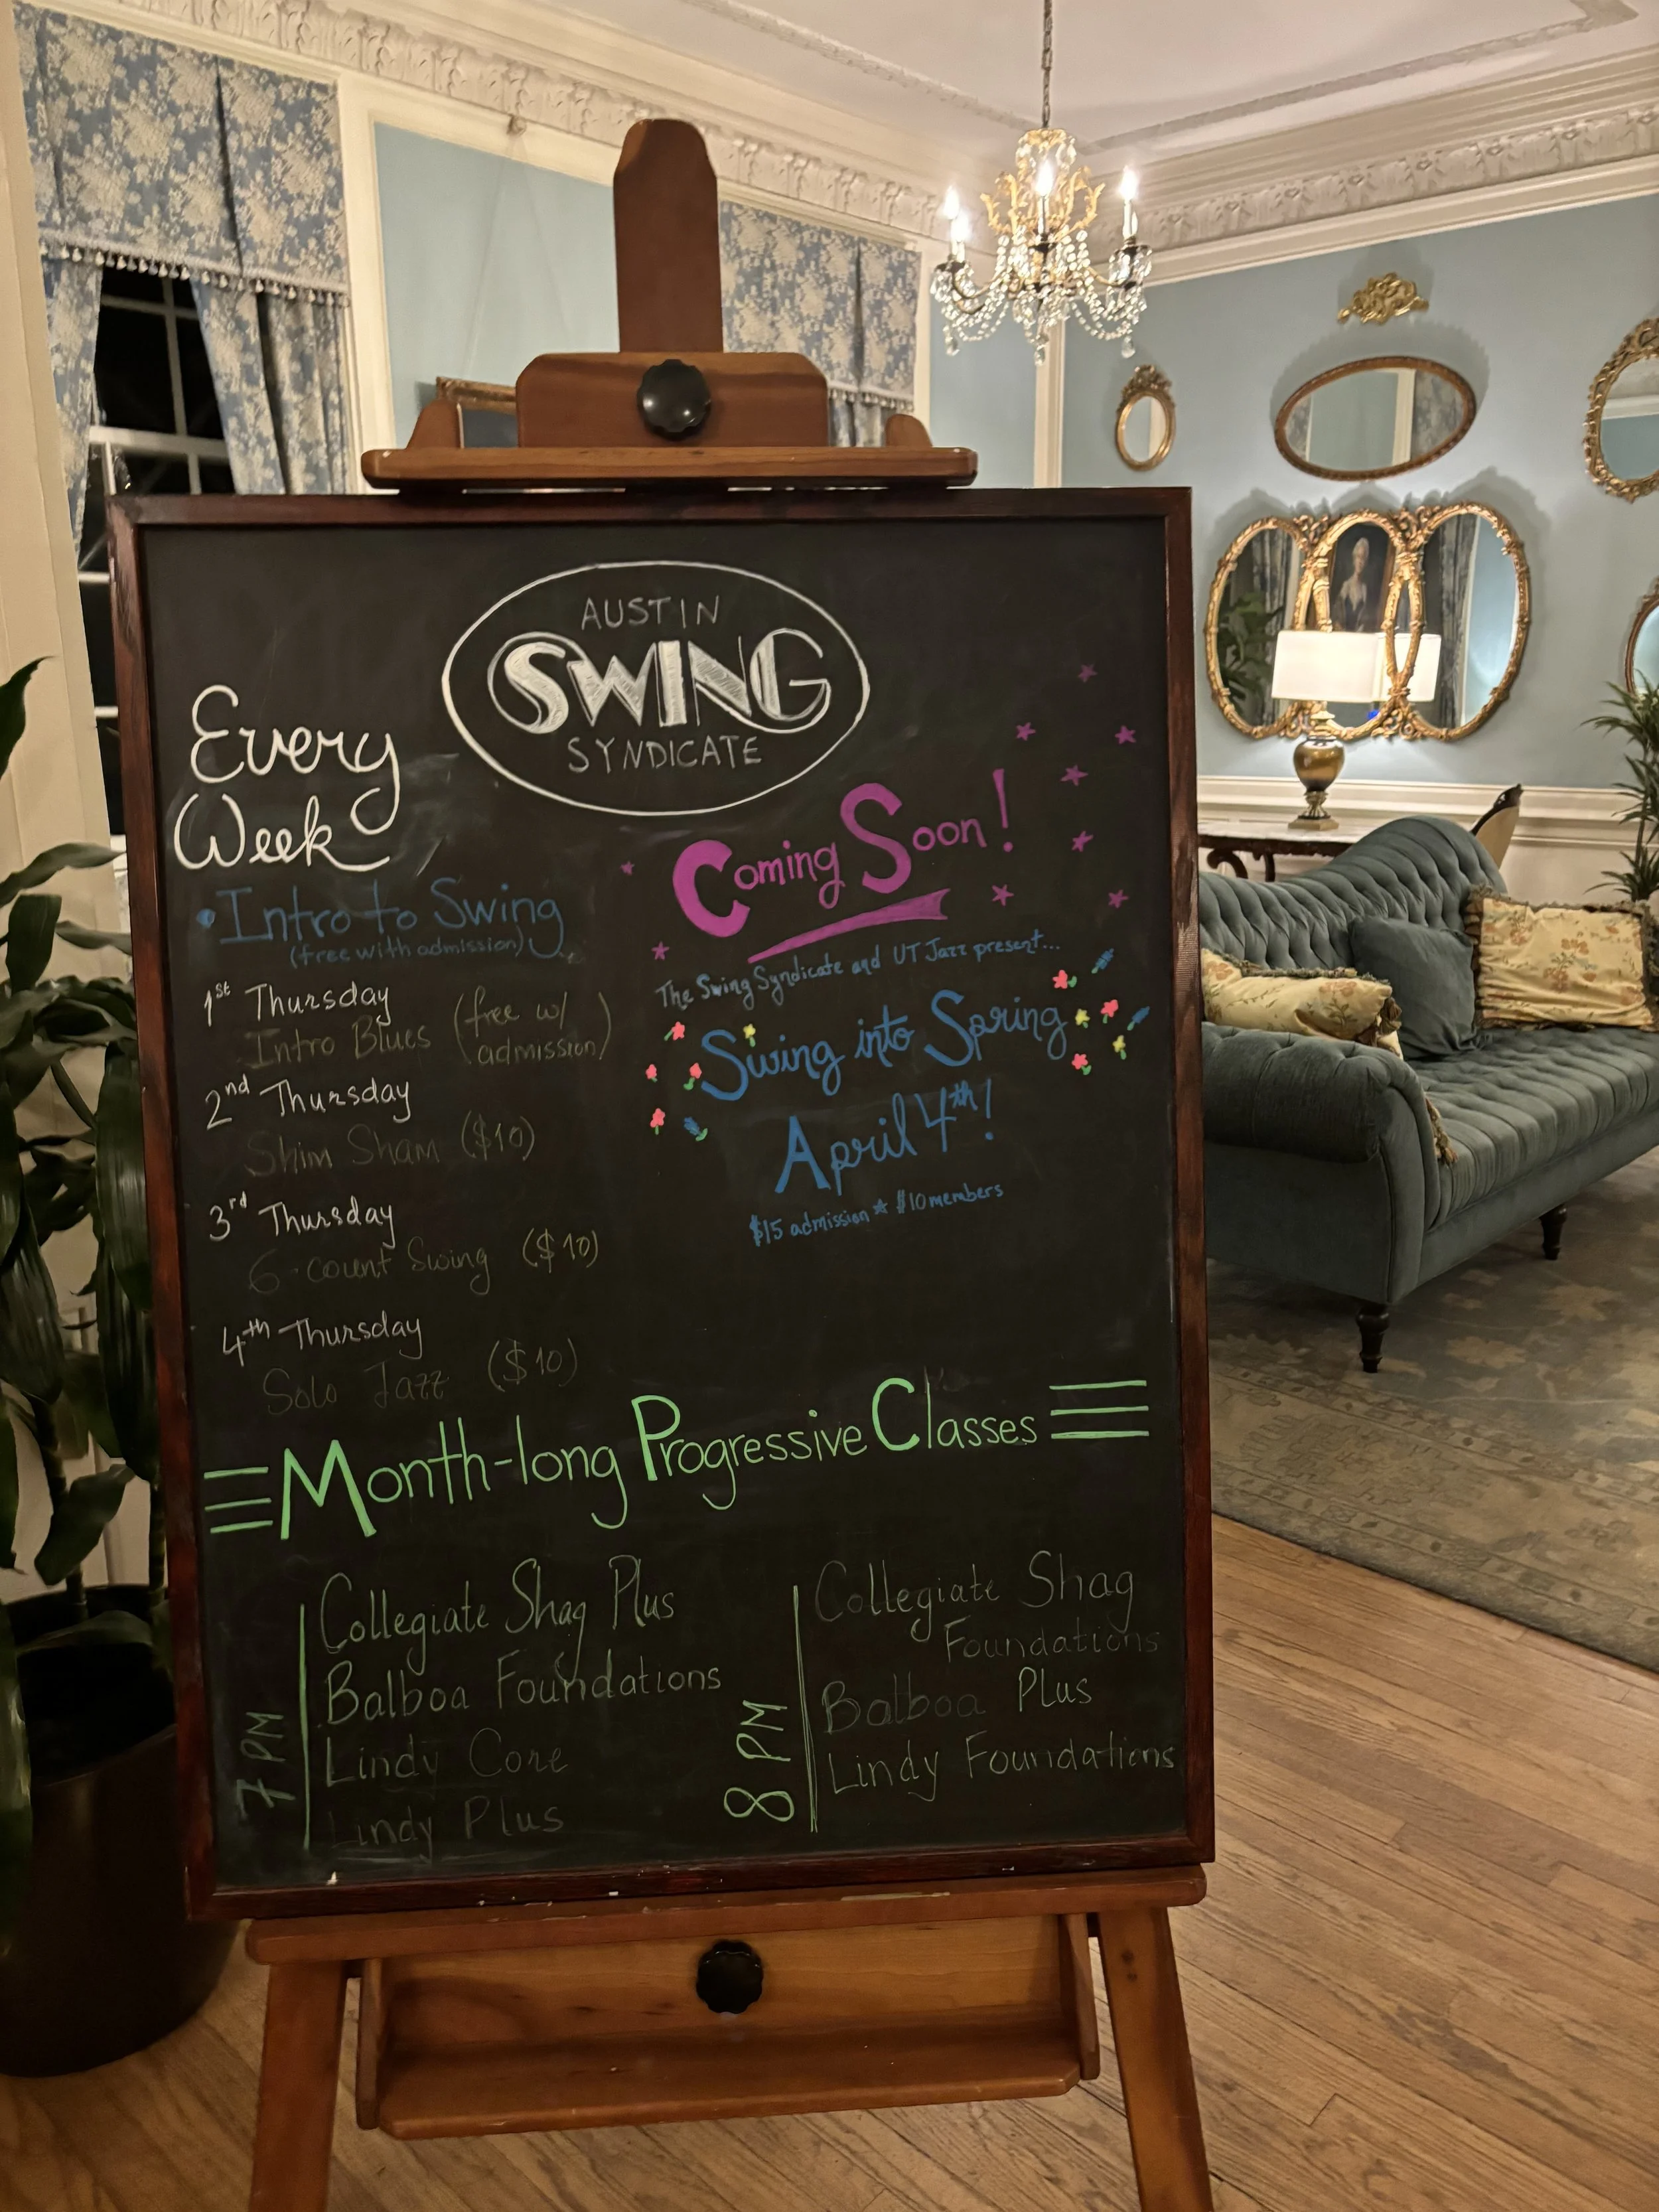 AUSTIN
SWING
SYNDICATE
Every
Week
• Intro to Swing
(free with admission)
1st Thursday
Intro Blues (free w/
admission)
2nd Thursday
Shim Sham ($10)
3rd Thursday
6-count Swing ($10)
4th Thursday
Solo Jazz ($10)
Coming Soon!
The Swing Syndicate and UT Jazz present...
Swing into Spring
April 4th!
$15 admission * $10 members
Month-long Progressive Classes
7 PM
Collegiate Shag Plus
Balboa Foundations
Lindy Core
Lindy Plus
8 PM
Collegiate Shag
Foundations
Balboa Plus
Lindy Foundations